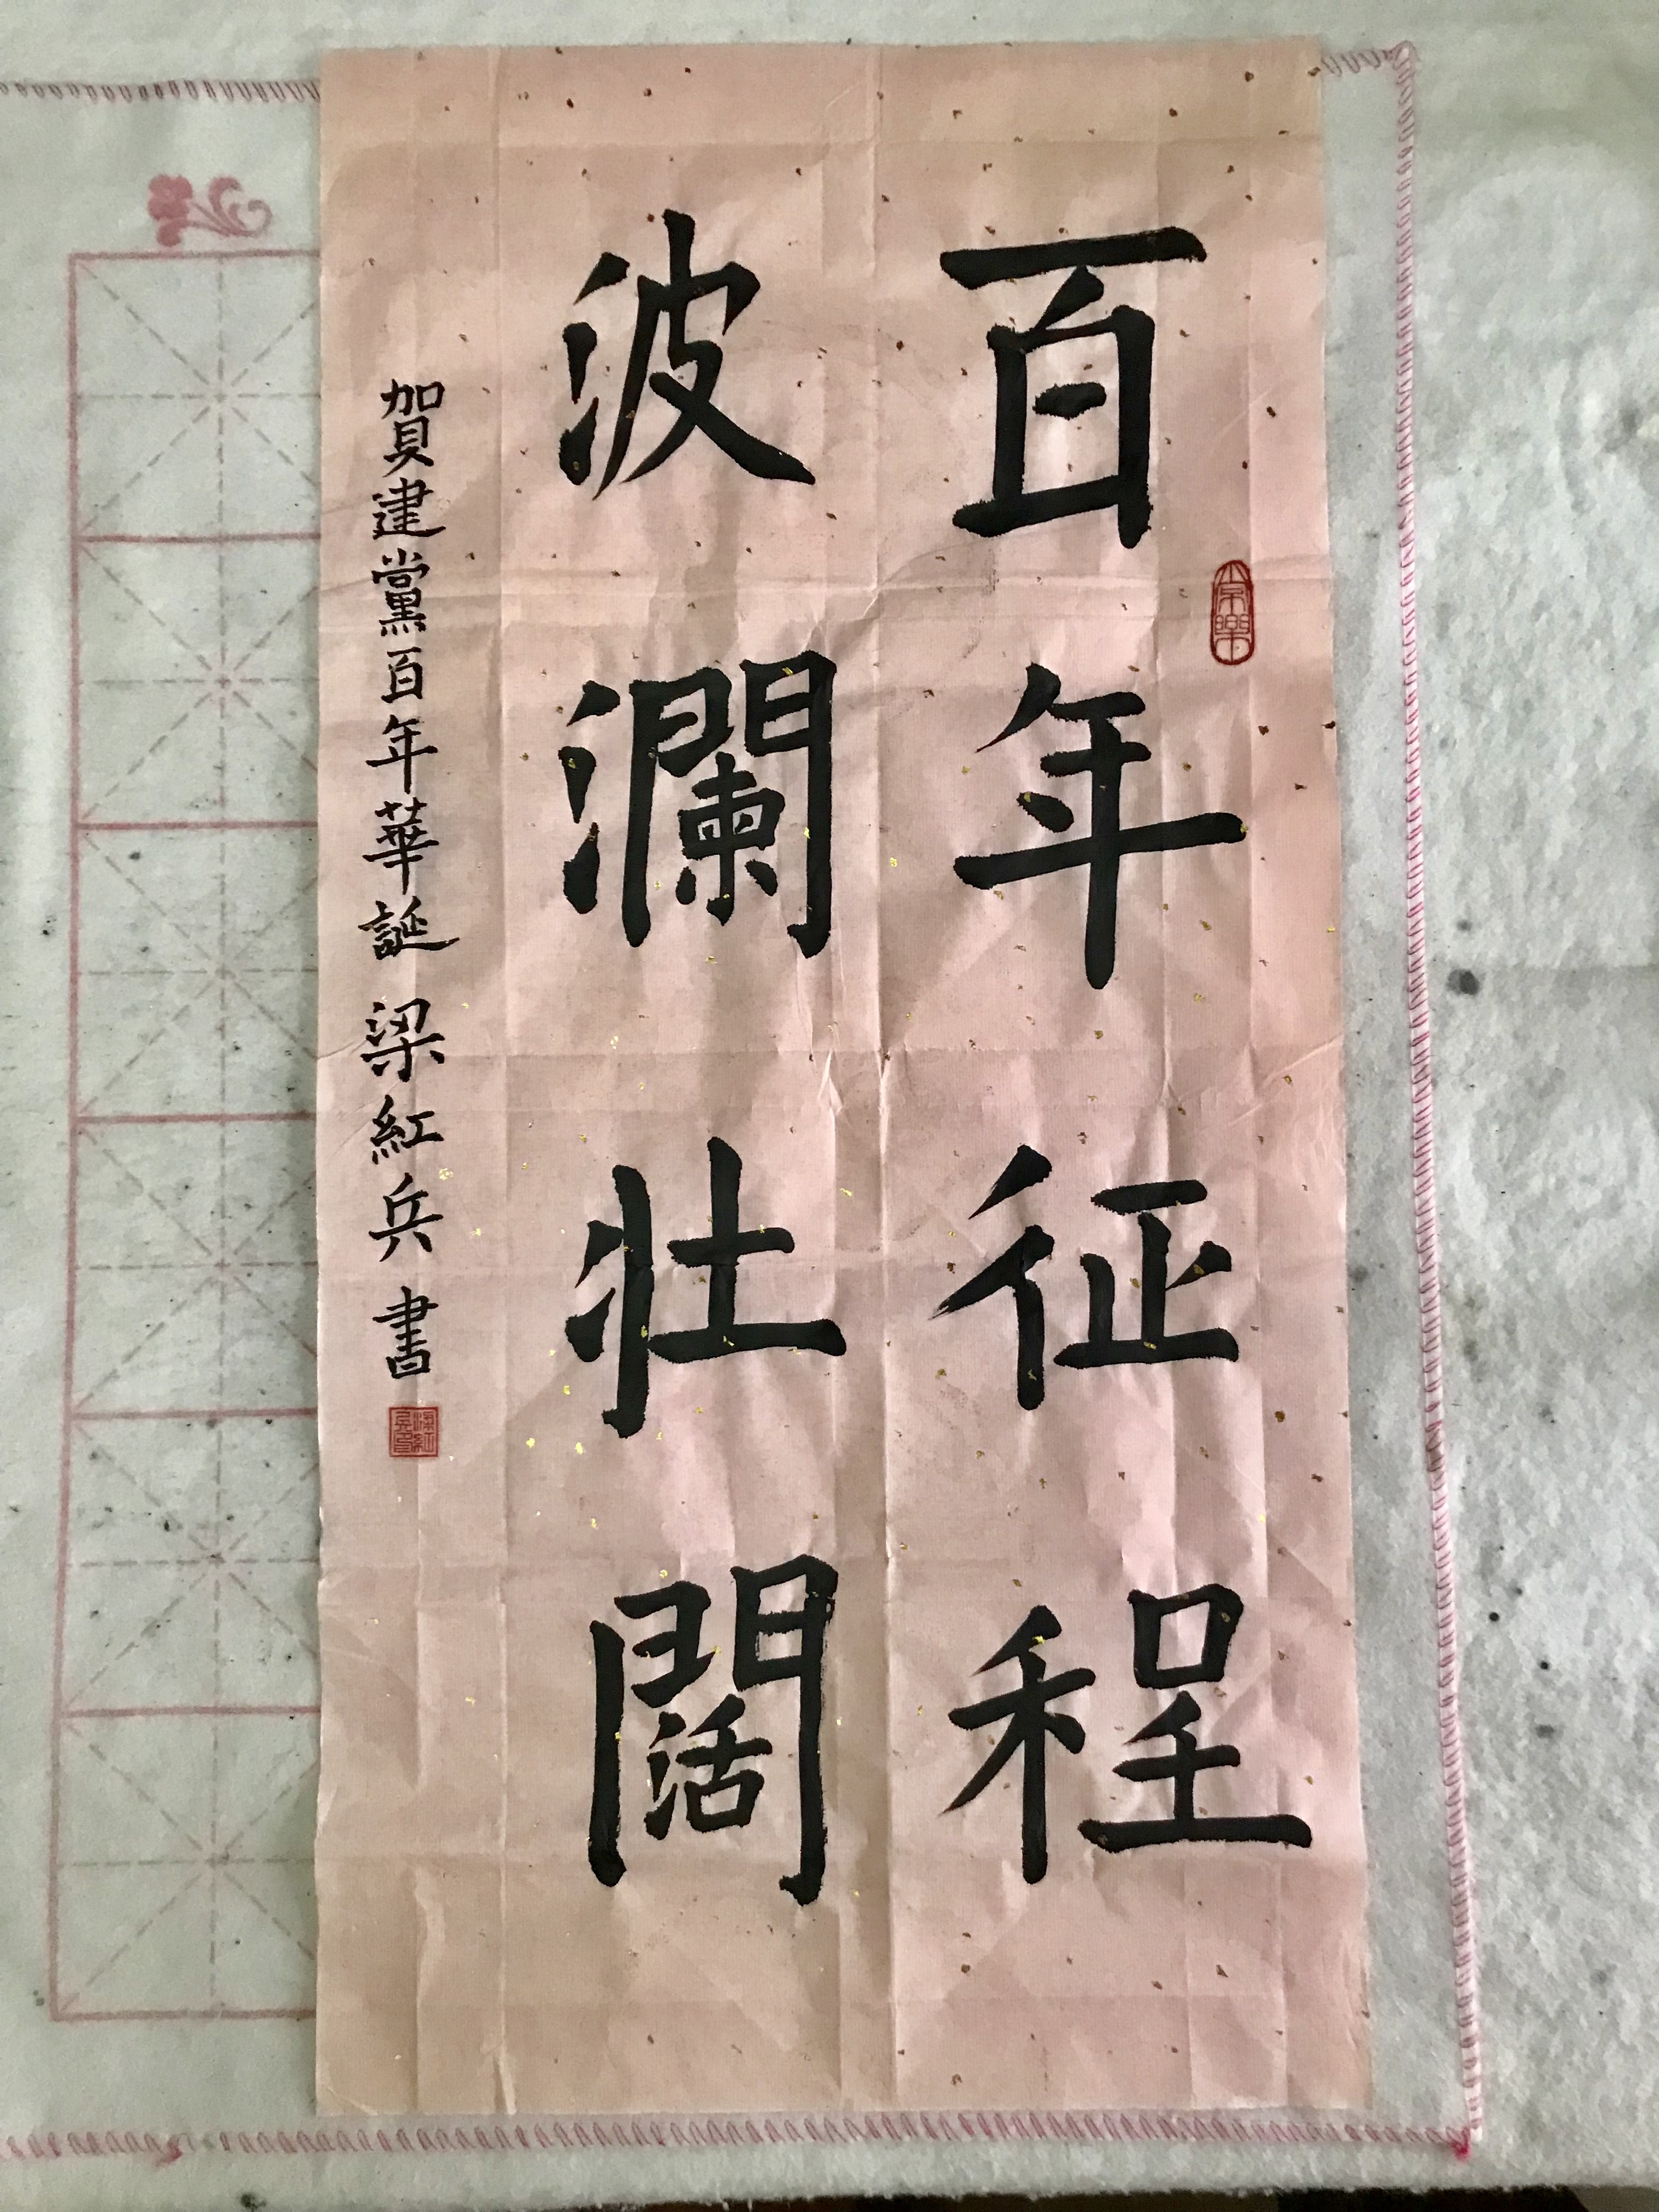 百年征程
波瀾壯闊
賀建黨百年華誕 梁紅兵 書